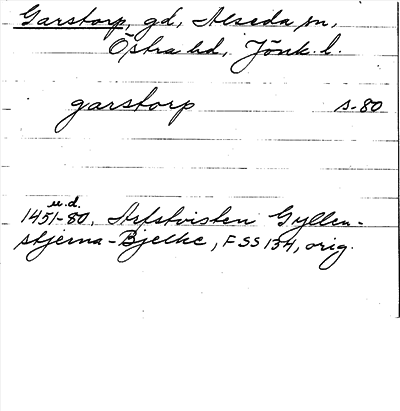 Garstorp, gd, Alseda sn,
Östra hd, Jönk. l.
garstorp s. 80
u.d.
1451-80, Arfstvisten Gyllen-
stjerna-Bjelke, FSS 154, orig.